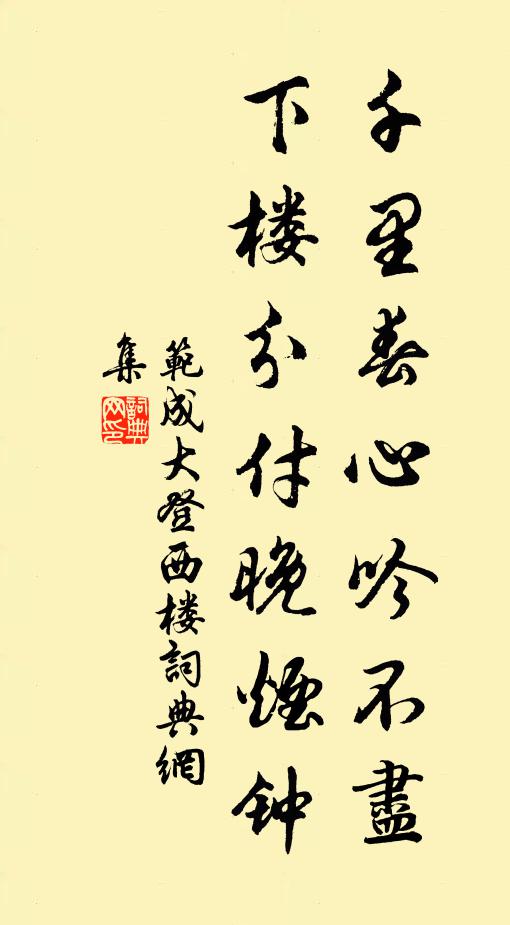 千里春心吟不盡
下楼分付晚煙钟
範成大登西楼詞典網
集
詞典网印